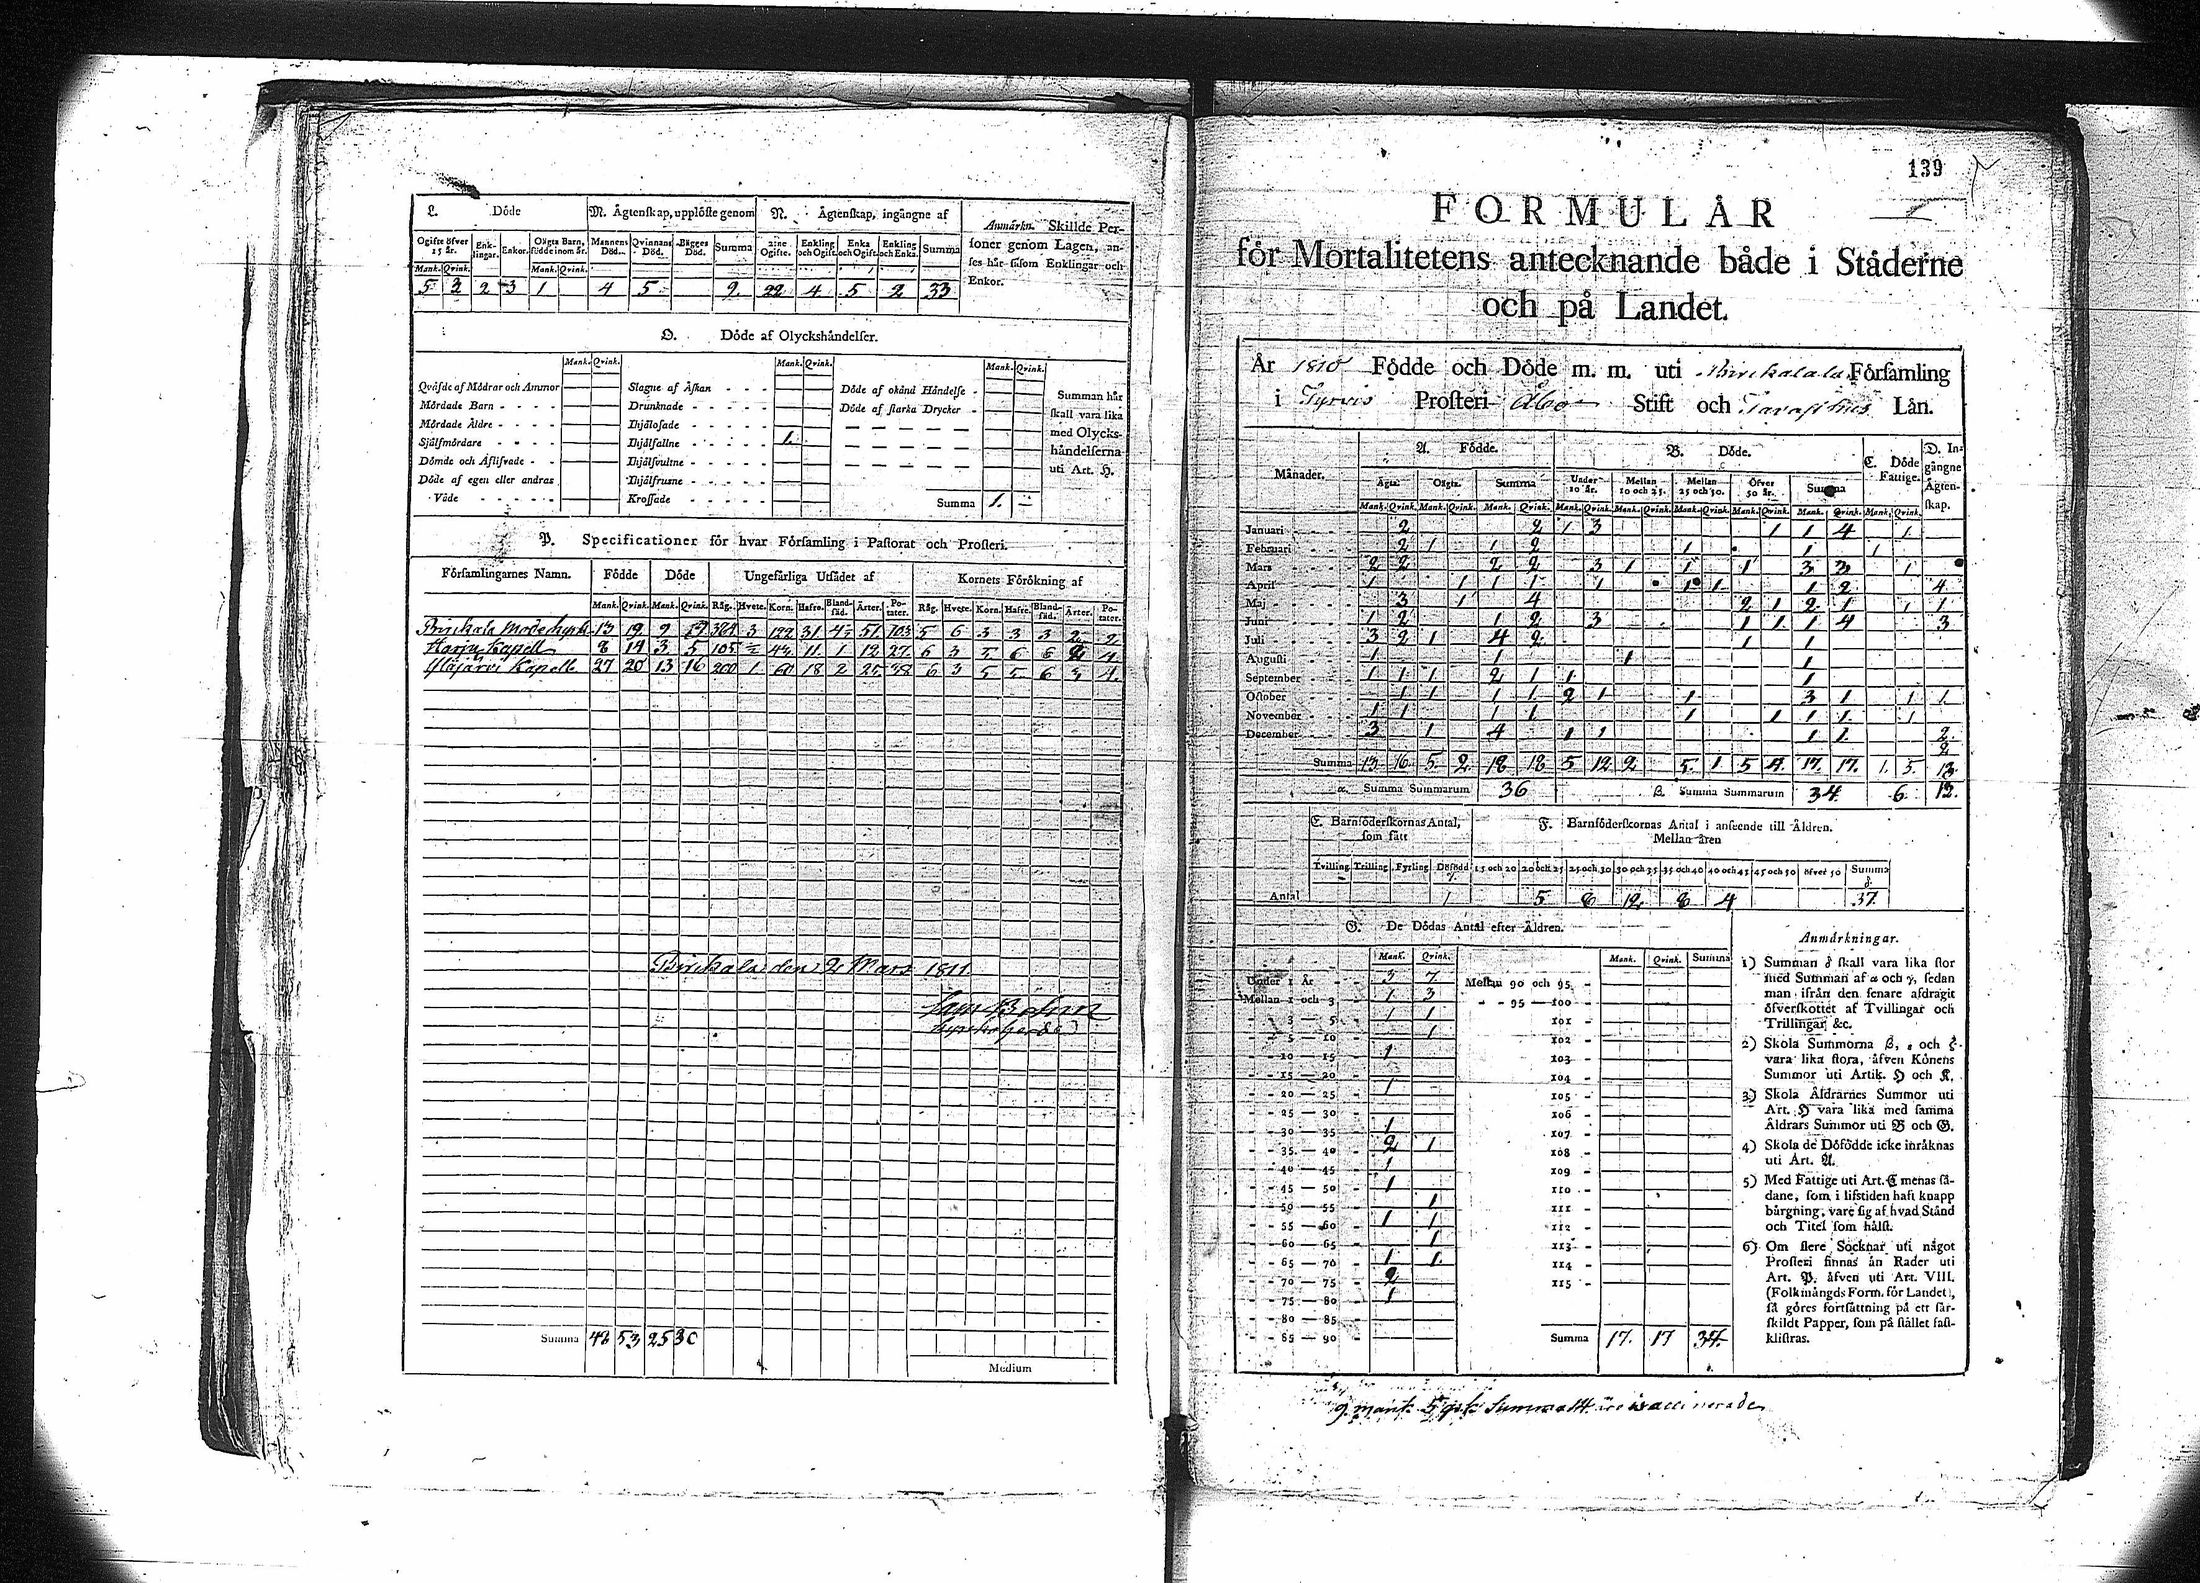 L. Döde
M. Ägtenskap, upplöste genom
N. Ägtenskap, ingångne af
Anmärkn. Skillde Personer genom Lagen, anses här såsom Enklingar och Enkor.
Ogifte öfver 15 år. Enklingar. Enkor. Oägta Barn, födde inom år. Mannens Död. Qvinnans Död. Bägges Död. Summa Ogifte. Enkling och Ogift. Enka och Ogift. Enkling och Enka. Summa
Mank. Qvink. Mank. Qvink.
5 2 2 3 1 4 5 9. 22 4 5 2 33
O. Döde af Olyckshändelser.
Mank. Qvink. Mank. Qvink. Mank. Qvink.
Qväfde af Mödrar och Ammor
Mördade Barn
Mördade Äldre
Sjelfmördare
Dömde och Aflifvade
Döde af egen eller andras Våde
Slagne af Åskan
Drunknade
Ihjälosade
Ihjälfallne 1.
Ihjälsvultne
Ihjälfrusne
Krossade
Döde af okänd Händelse
Döde af starka Drycker
Summa 1. -
Summan här skall vara lika med Olyckshändelserna uti Art. H.
P. Specificationer för hvar Församling i Pastorat och Prosteri.
Församlingarnes Namn. Födde Döde Ungefärliga Utsädet af Kornets Förökning af
Mank. Qvink. Mank. Qvink. Råg. Hvete. Korn. Hafre. Blandsäd. Ärter. Potater. Råg. Hvete. Korn. Hafre. Blandsäd. Ärter. Potater.
Birckala Moderkyrk. 13 19 9 3 122 31 51 103 5 6 3 3 3 2
Harju Kapell 8 14 3 5 105 43 11 1 12 27 6 3 5 6 6 4
Ylöjärvi Kapell 27 20 13 16 200 1 60 18 2 25 38 6 3 5 5 6 3 4.
Birckala den 2 Mars 1811.
Summa 48 53 25 30
Medium
139
FORMULÅR
för Mortalitetens antecknande både i Städerne
och på Landet.
År 1810 Födde och Döde m. m. uti Birckala Församling
i Tyrvis Prosteri Åbo Stift och Tavasthus Län.
Månader. A. Födde. B. Döde. C. Döde Fattige. D. Ingångne Ägtenskap.
Ägta. Oägta. Summa Under 10 år. Mellan 10 och 25. Mellan 25 och 50. Öfver 50 år. Summa
Mank. Qvink. Mank. Qvink. Mank. Qvink. Mank. Qvink. Mank. Qvink. Mank. Qvink. Mank. Qvink. Mank. Qvink. Mank. Qvink.
Januari 2 2 1 3 1 1 4 1
Februari 2 1 1 2 1 1 1
Mars 2 2 2 2 3 1 1 1 3 3 1
April 1 1 1 1 1 1 1 1 2 4
Maj 3 1 4 2 1 2 1 1 1
Juni 1 2 1 2 3 1 1 1 4 3
Juli 3 2 1 4 2 1 1
Augusti 1 1 1 1
September 1 1 1 2 1 1 1
October 1 1 1 1 2 1 1 3 1 1 1
November 1 1 1 1 1 1 1 1 1
December 3 1 4 1 1 1 1 2
2
Summa 13 16 5 2 18 18 5 12 2 5 1 5 4 17. 17. 1. 5. 13
α. Summa Summarum 36 β. Summa Summarum 34 6 12.
E. Barnföderskornas Antal, som fått
F. Barnföderskornas Antal i anseende till Åldren.
Mellan åren
Tvilling Trilling Fyrling Dödfödd 15 och 20 20 och 25 25 och 30 30 och 35 35 och 40 40 och 45 45 och 50 öfver 50 Summa δ.
Antal 1 5 8 12 8 4 37
G. De Dödas Antal efter Åldren.
Mank. Qvink. Mank. Qvink. Summa
Under 1 År 3 7
Mellan 1 och 3 1 3
3 — 5 1 1
5 — 10 1
10 — 15 1
15 — 20
20 — 25 1
25 — 30
30 — 35 1
35 — 40 2 1
40 — 45 1
45 — 50 1
50 — 55 1
55 — 60 1 1
60 — 65 1
65 — 70 1 1
70 — 75 2
75 — 80 1
80 — 85
85 — 90
Mellan 90 och 95
95 — 100
101
102
103
104
105
106
107
108
109
110
111
112
113
114
115
Summa 17. 17 34.
Anmärkningar.
1) Summan δ skall vara lika stor
med Summan af α och γ, sedan
man ifrån den senare afdragit
öfverskottet af Tvillingar och
Trillingar &c.
2) Skola Summorna β, ε och ζ
vara lika stora, äfven Könens
Summor uti Artik. H och K.
3) Skola Åldrarnes Summor uti
Art. H vara lika med samma
Åldrars Summor uti B och G.
4) Skola de Döfödde icke inräknas
uti Art. A.
5) Med Fattige uti Art. C menas sådane,
som i lifstiden haft knapp
bärgning, vare sig af hvad Stånd
och Titel som hälst.
6) Om flere Socknar uti något
Prosteri finnas än Rader uti
Art. P. äfven uti Art. VIII.
(Folkmängds Form. för Landet),
så göres fortsättning på ett särskildt
Papper, som på stället fastklistras.
9 mank. 5 qvk. Summa 14 äro vaccinerade